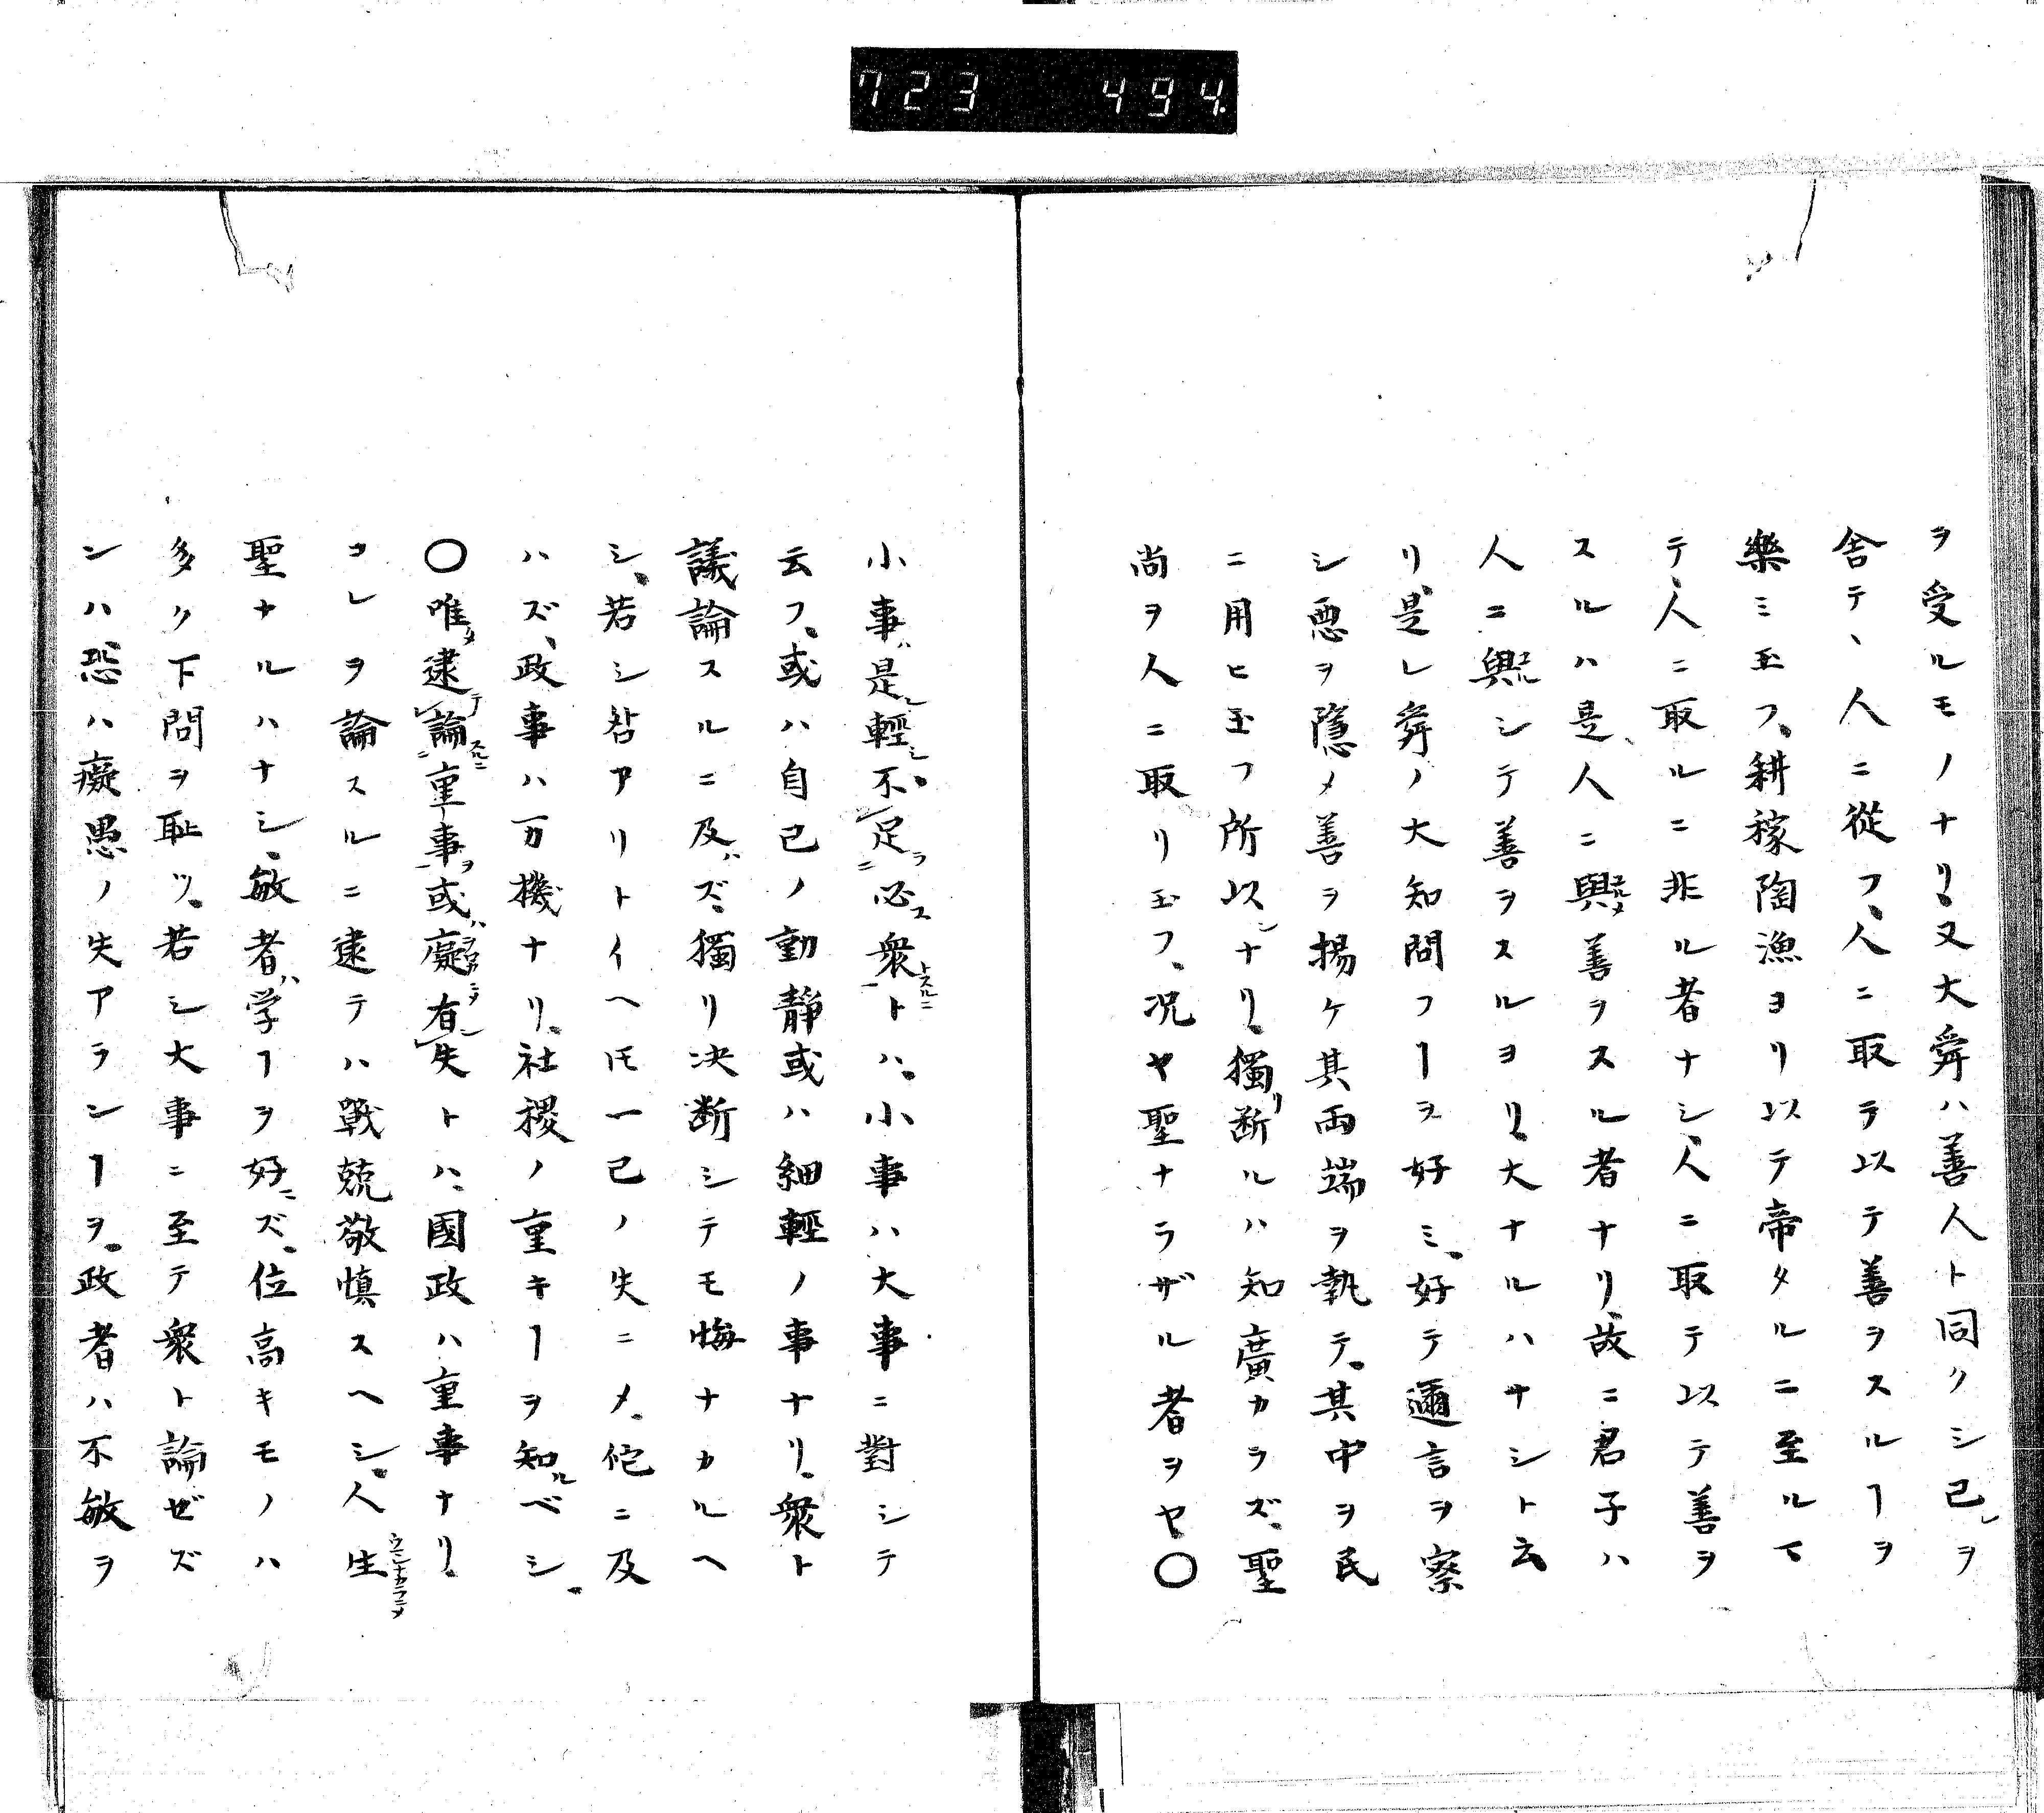 723 494.
ヲ受ルモノナリ又大舜ハ善人ト同クシ己レヲ
舍テ、人ニ從フ、人ニ取テ以テ善ヲスルヿヲ
樂ミ玉フ、耕稼陶漁ヨリ以テ帝タルニ至ルマ
テ、人ニ取ルニ非ル者ナシ、人ニ取テ以テ善ヲ
スルハ是、人ニ與善ヲスル者ナリ、故ニ君子ハ
人ニ與シテ善ヲスルヨリ、大ナルハナシト云
リ、是レ舜ノ大知問フヿヲ好ミ、好テ邇言ヲ察
シ悪ヲ隱メ善ヲ揚ケ其両端ヲ執テ、其中ヲ民
ニ用ヒ玉フ所以ナリ、獨リ断ルハ知廣カラズ、聖
尚ヲ人ニ取リ玉フ、况ヤ聖ナラザル者ヲヤ、〇
小事ハ是レ輕シ、不足ラ必ス衆トスルニトハ、小事ハ大事ニ對シテ
云フ、或ハ自己ノ動靜或ハ細輕ノ事ナリ、衆ト
議論スルニ及ハズ、獨リ决断シテモ悔ナカルヘ
シ、若シ咎アリトイヘ𪜈一己ノ失ニメ、佗ニ及
ハズ、政事ハ万機ナリ、社稷ノ重キヿヲ知ルベシ、
〇唯タ逮テ論スルニ重事ヲ或ハ癡有失トハ、國政ハ重事ナリ、
コレヲ論スルニ逮テハ戰兢敬慎スヘシ、人生
聖ナルハナシ、敏者ハ学ヿヲ好ニズ、位高キモノハ
多ク下問ヲ恥ヅ、若シ大事ニ至テ衆ト論ゼズ
ンハ恐ハ癡愚ノ失アランヿヲ、政者ハ不敏ヲ